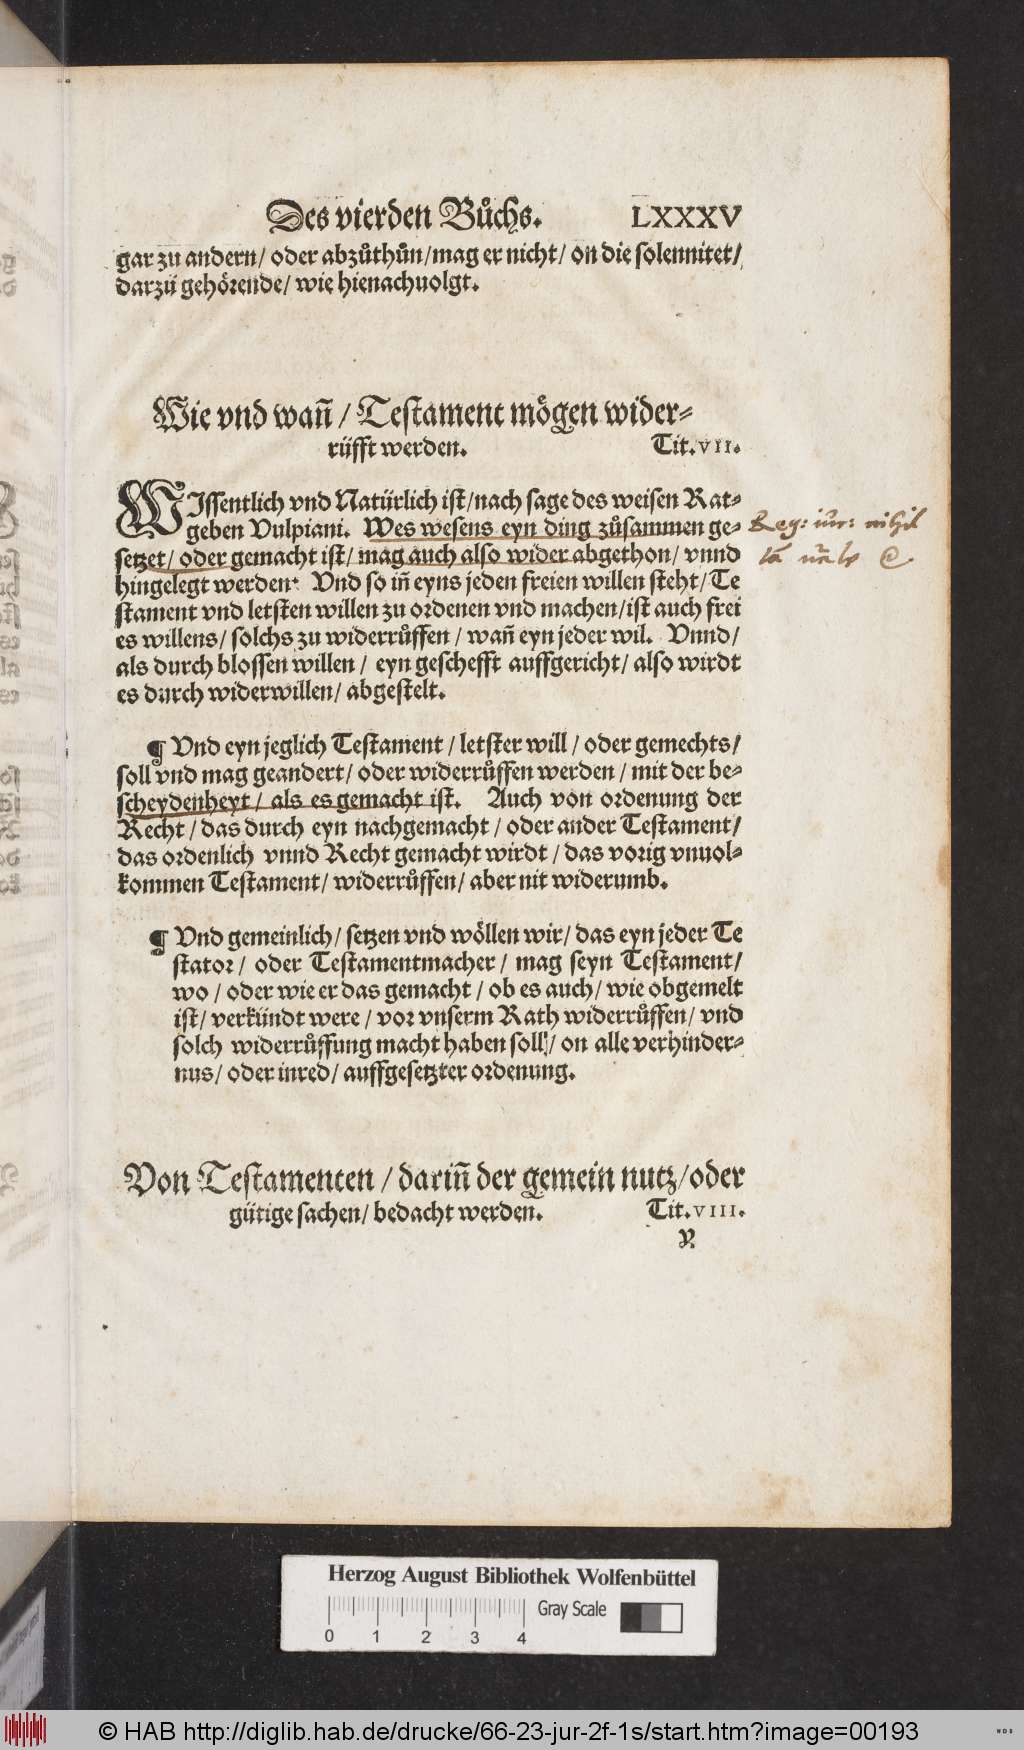 Des vierden Bůchs. LXXXV
gar zu andern/ oder abzůthůn/mag er nicht/ on die solennitet/
darzü gehörende/ wie hienachuolgt.
Wie vnd wañ / Testament mögen wider⸗
rüfft werden. Tit.VII.
WIssentlich vnd Natürlich ist/nach sage des weisen Rat⸗
geben Vulpiani. Wes wesens eyn ding zůsammen ge⸗
setzet/ oder gemacht ist/ mag auch also wider abgethon/ vnnd
hingelegt werden: Vnd so iñ eyns jeden freien willen steht/ Te
stament vnd letsten willen zu ordenen vnd machen/ist auch frei
es willens/ solchs zu widerrůffen / wañ eyn jeder wil. Vnnd/
als durch blossen willen / eyn geschefft auffgericht/ also wirdt
es durch widerwillen/ abgestelt.
¶ Vnd eyn jeglich Testament / letster will / oder gemechts/
soll vnd mag geandert/ oder widerrůffen werden / mit der be⸗
scheydenheyt / als es gemacht ist. Auch von ordenung der
Recht / das durch eyn nachgemacht / oder ander Testament/
das ordenlich vnnd Recht gemacht wirdt / das vorig vnuol⸗
kommen Testament/ widerrůffen/ aber nit widerumb.
¶ Vnd gemeinlich/ setzen vnd wöllen wir/ das eyn jeder Te
stator/ oder Testamentmacher / mag seyn Testament/
wo / oder wie er das gemacht / ob es auch/ wie obgemelt
ist/ verkündt were / vor vnserm Rath widerrůffen/ vnd
solch widerrůffung macht haben soll/ on alle verhinder⸗
nus/ oder inred/ auffgesetzter ordenung.
Von Testamenten / dariñ der gemein nutz/oder
gütige sachen/ bedacht werden. Tit.VIII.
v.
Reg: iur: nihil
tā
Herzog August Bibliothek Wolfenbüttel
Gray Scale
0 1 2 3 4
© HAB http://diglib.hab.de/drucke/66-23-jur-2f-1s/start.htm?image=00193
WDB